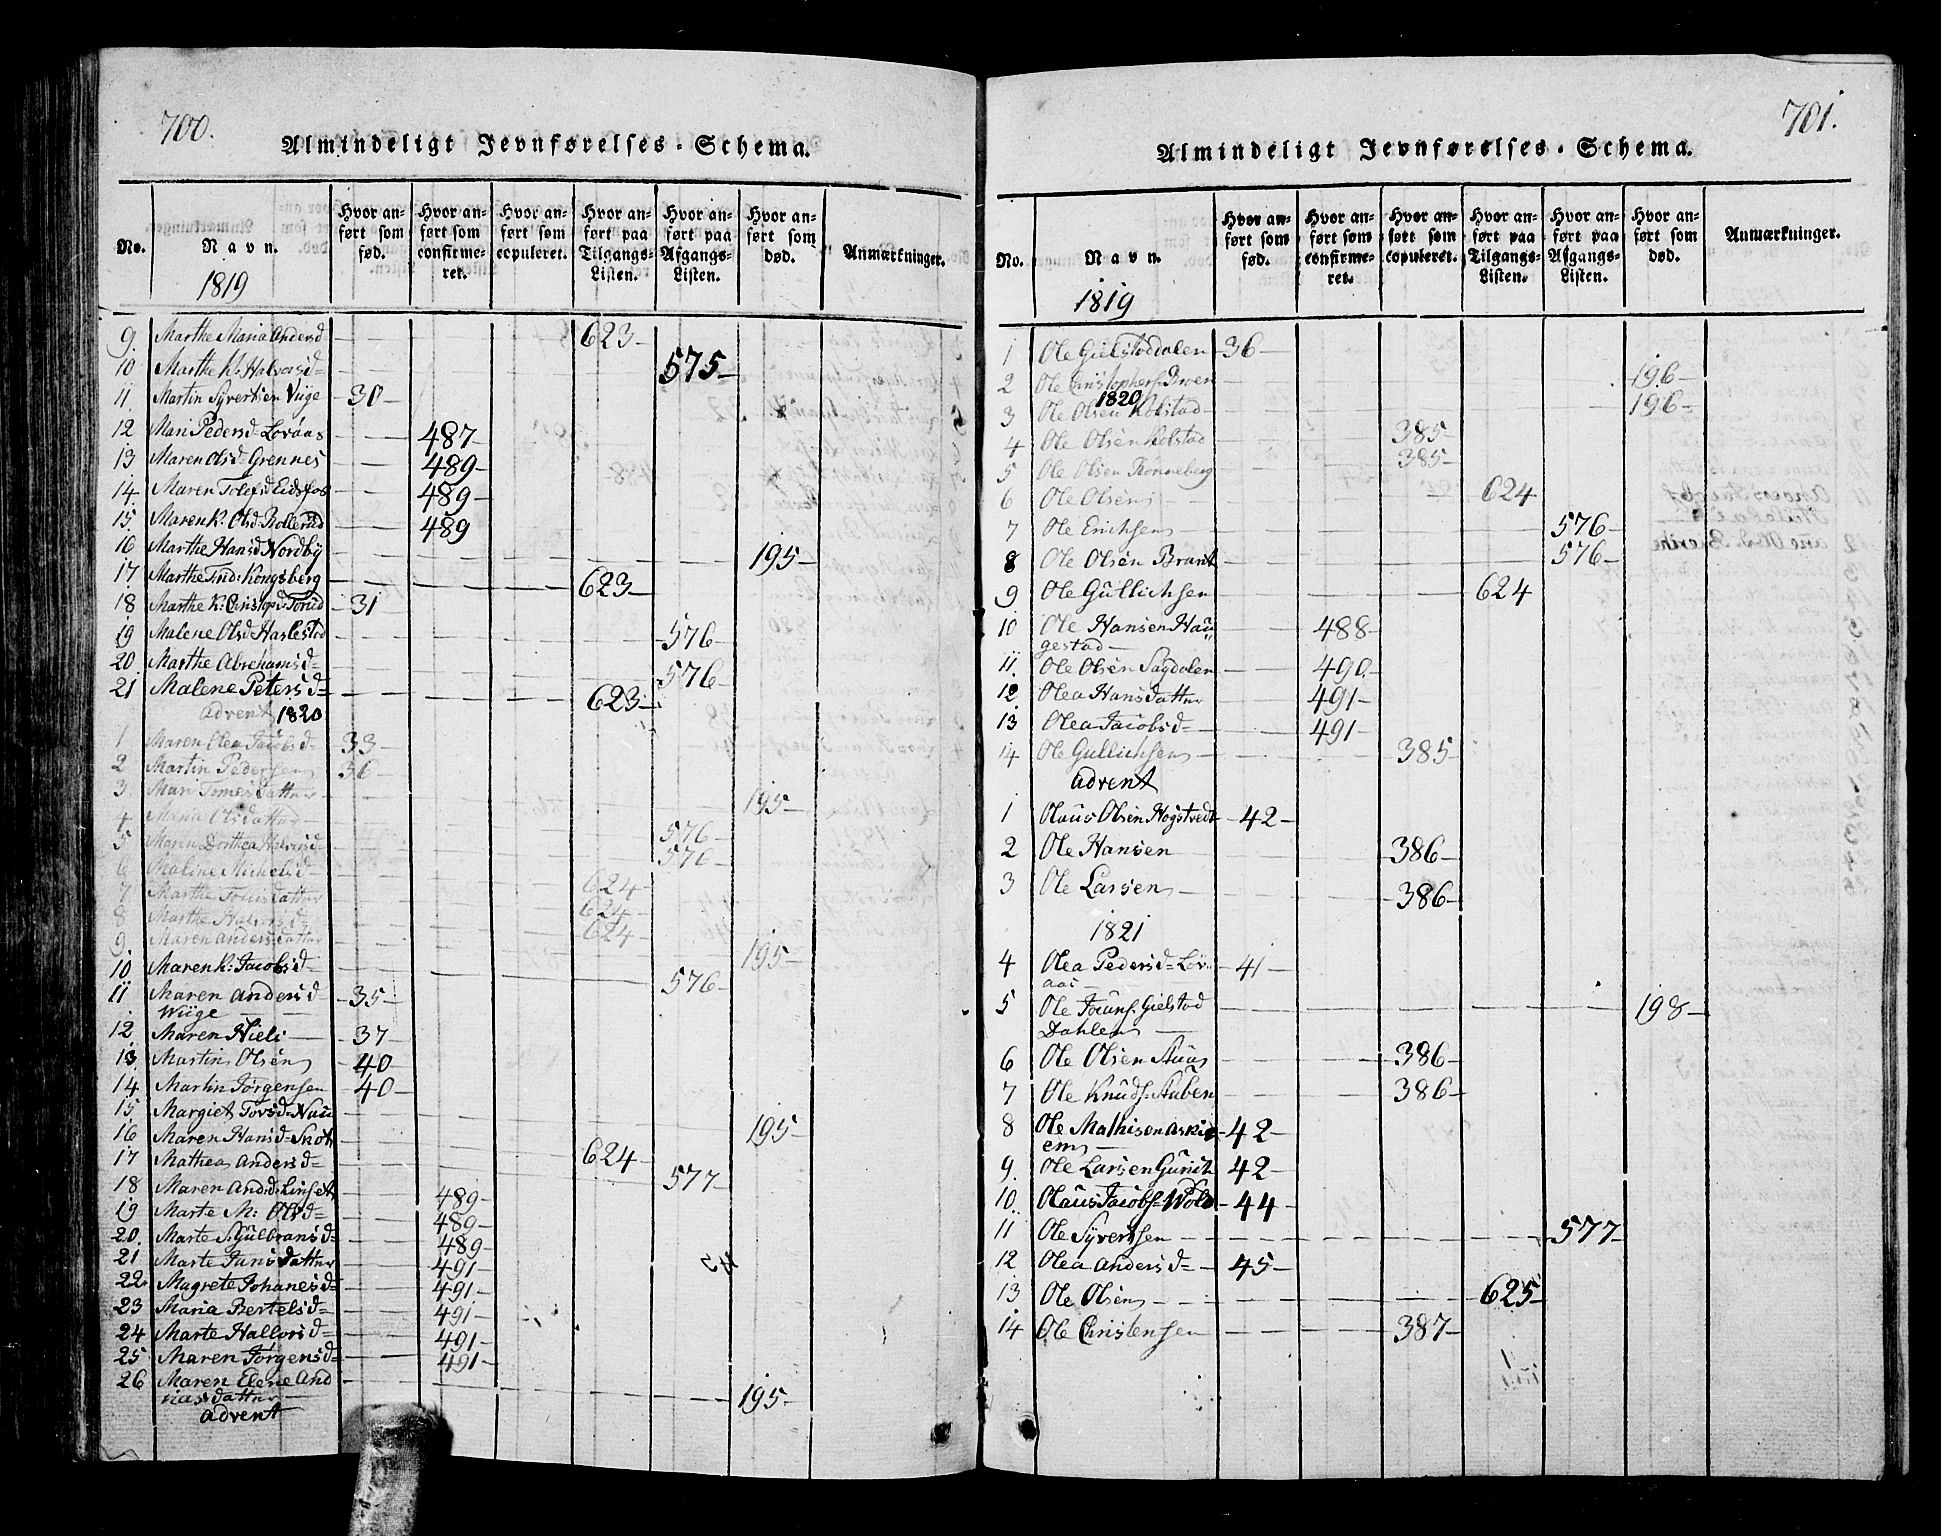 700.
Almindeligt Jevnførelses-Schema.
No.
Navn.
1819
Hvor anført som fød.
Hvor anført som confirmeret.
Hvor anført som copuleret.
Hvor anført paa Tilgangs-Listen.
Hvor anført paa Afgangs-Listen.
Hvor anført som død.
Anmærkninger.
9 Marthe Maria Andersd 623
10 Marthe K. Halvorsd= 575
11. Martin Syvertsen Viige 30
12 Mari Pedersd= Lovaas 487
13 Maren Olsd= Grennes 489
14 Maren Tolefsd Eidsfos 489
15. Maren K. Olsd= Rollerud 489
16 Marthe Hansd Nordby 195
17 Marthe Kongsberg 623
18 Marthe K: 31
19 Malene Olsd Haslestad 576
20 Marthe Abrehamsd= 576
21 Malene Petersd= 623
advent 1820
1 Maren Olea Jacobsd= 33
2 Martin Pedersen 36
3. Mari Tomesdatter 195
4 Maria Olsdatter 576
5 Maren Dorthea Halvorsd= 576
6 Maline Michelsd= 624
7 Marthe 624
8 Marthe Halvorsd= 624
9. Maren Andersdatter 195
10 Maren K: Jacobsd= 576
11 Maren Andersd= 35
Wiige
12. Maren Niels 37
13. Martin Olsen 40
14 Martin Jørgensen 40
15 Margiet Torsd= 195
16 Maren Hansd= 624
17 Mathea Andersd= 577
18 Maren And:d: 489
19 Marte M: Olsd= 489
20. Marte S. Gulbransd= 489
21 Marte Junsdatter 491
22 Magrete Johanesd= 491
23 Maria Bertelsd= 491
24 Marte Hallorsd= 491
25 Maren Jørgensd= 491
26 Maren Elene And
riasdatter 195
advent
701.
Almindeligt Jevnførelses-Schema.
No.
Navn.
1819
Hvor anført som fød.
Hvor anført som confirmeret.
Hvor anført som copuleret.
Hvor anført paa Tilgangs-Listen.
Hvor anført paa Afgangs-Listen.
Hvor anført som død.
Anmærkninger.
1 Ole Gielstoddalen 36
2 Ole Christophers. 196
1820
3 Ole Olsen Kolstad 196
4 Ole Olsen Kolstad 385
5 Ole Olsen Ronneberg 385
6 Ole Olsen 624
7 Ole Erichsen 576
8 Ole Olsen Brant 576
9 Ole Gullichsen 624
10 Ole Hansen Hau
gestad 488
11. Ole Olsen Sagdalen 490.
12. Olea Hansdatter 491
13 Olea Jacobsd= 491
14 Ole Gullichsen 385
advent
1 Olaus Olsen Hogstvedt 42
2 Ole Hansen 386
3 Ole Larsen 386
1821
4 Olea Pedersd= Lov
aas 41
5 Ole Gielstod
Dahlen 198
6 Ole Olsen 386
7 Ole Knuds. Staben 386
8 Ole Mathisen Aski
em 42
9. Ole Larsen 42
10. Olaus Jacobs= Wold 44
11 Ole Syvertsen 577
12 Olea Andersd= 45
13 Ole Olsen 625
14 Ole Christensen 387